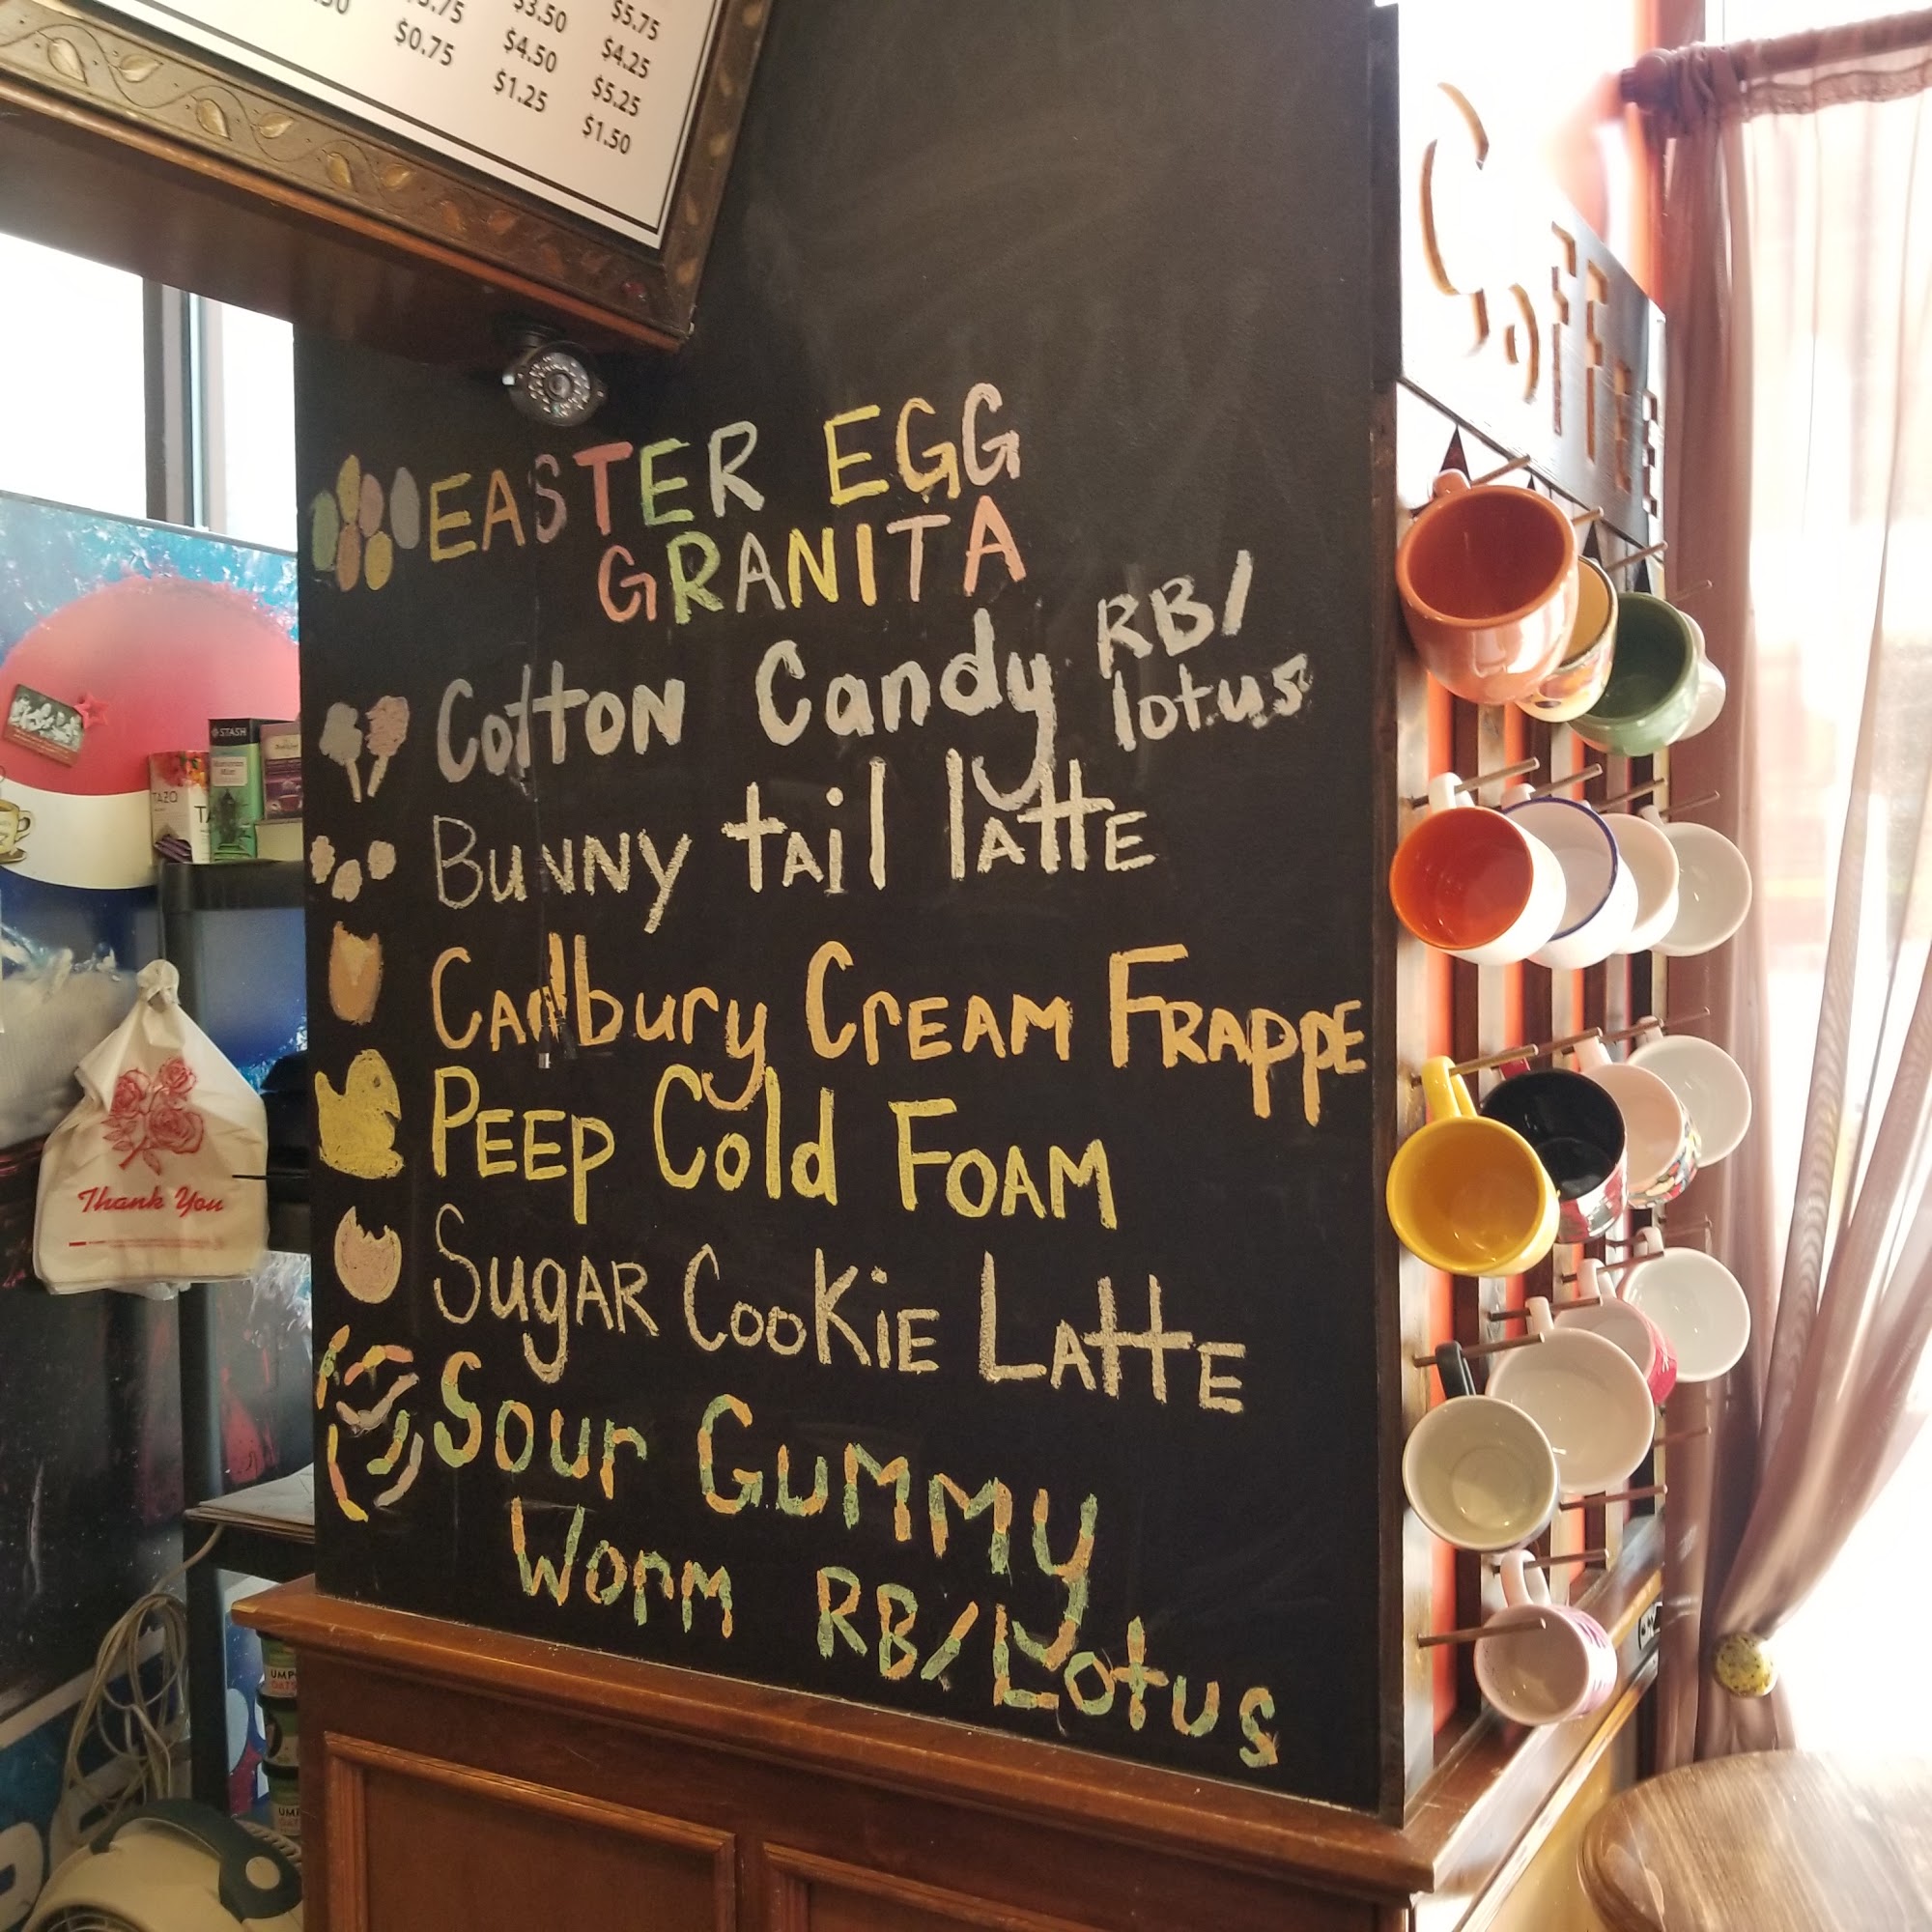 $3.50 $5.75
$0.75 $4.50 $4.25
$1.25 $5.25
$1.50
COFFEE
EASTER EGG
GRANITA
Cotton Candy RB/
lotus
Bunny tail latte
Cadbury Cream Frappe
Peep Cold Foam
Sugar Cookie Latte
Sour Gummy
Worm RB/Lotus
STASH
TAZO
Thank You